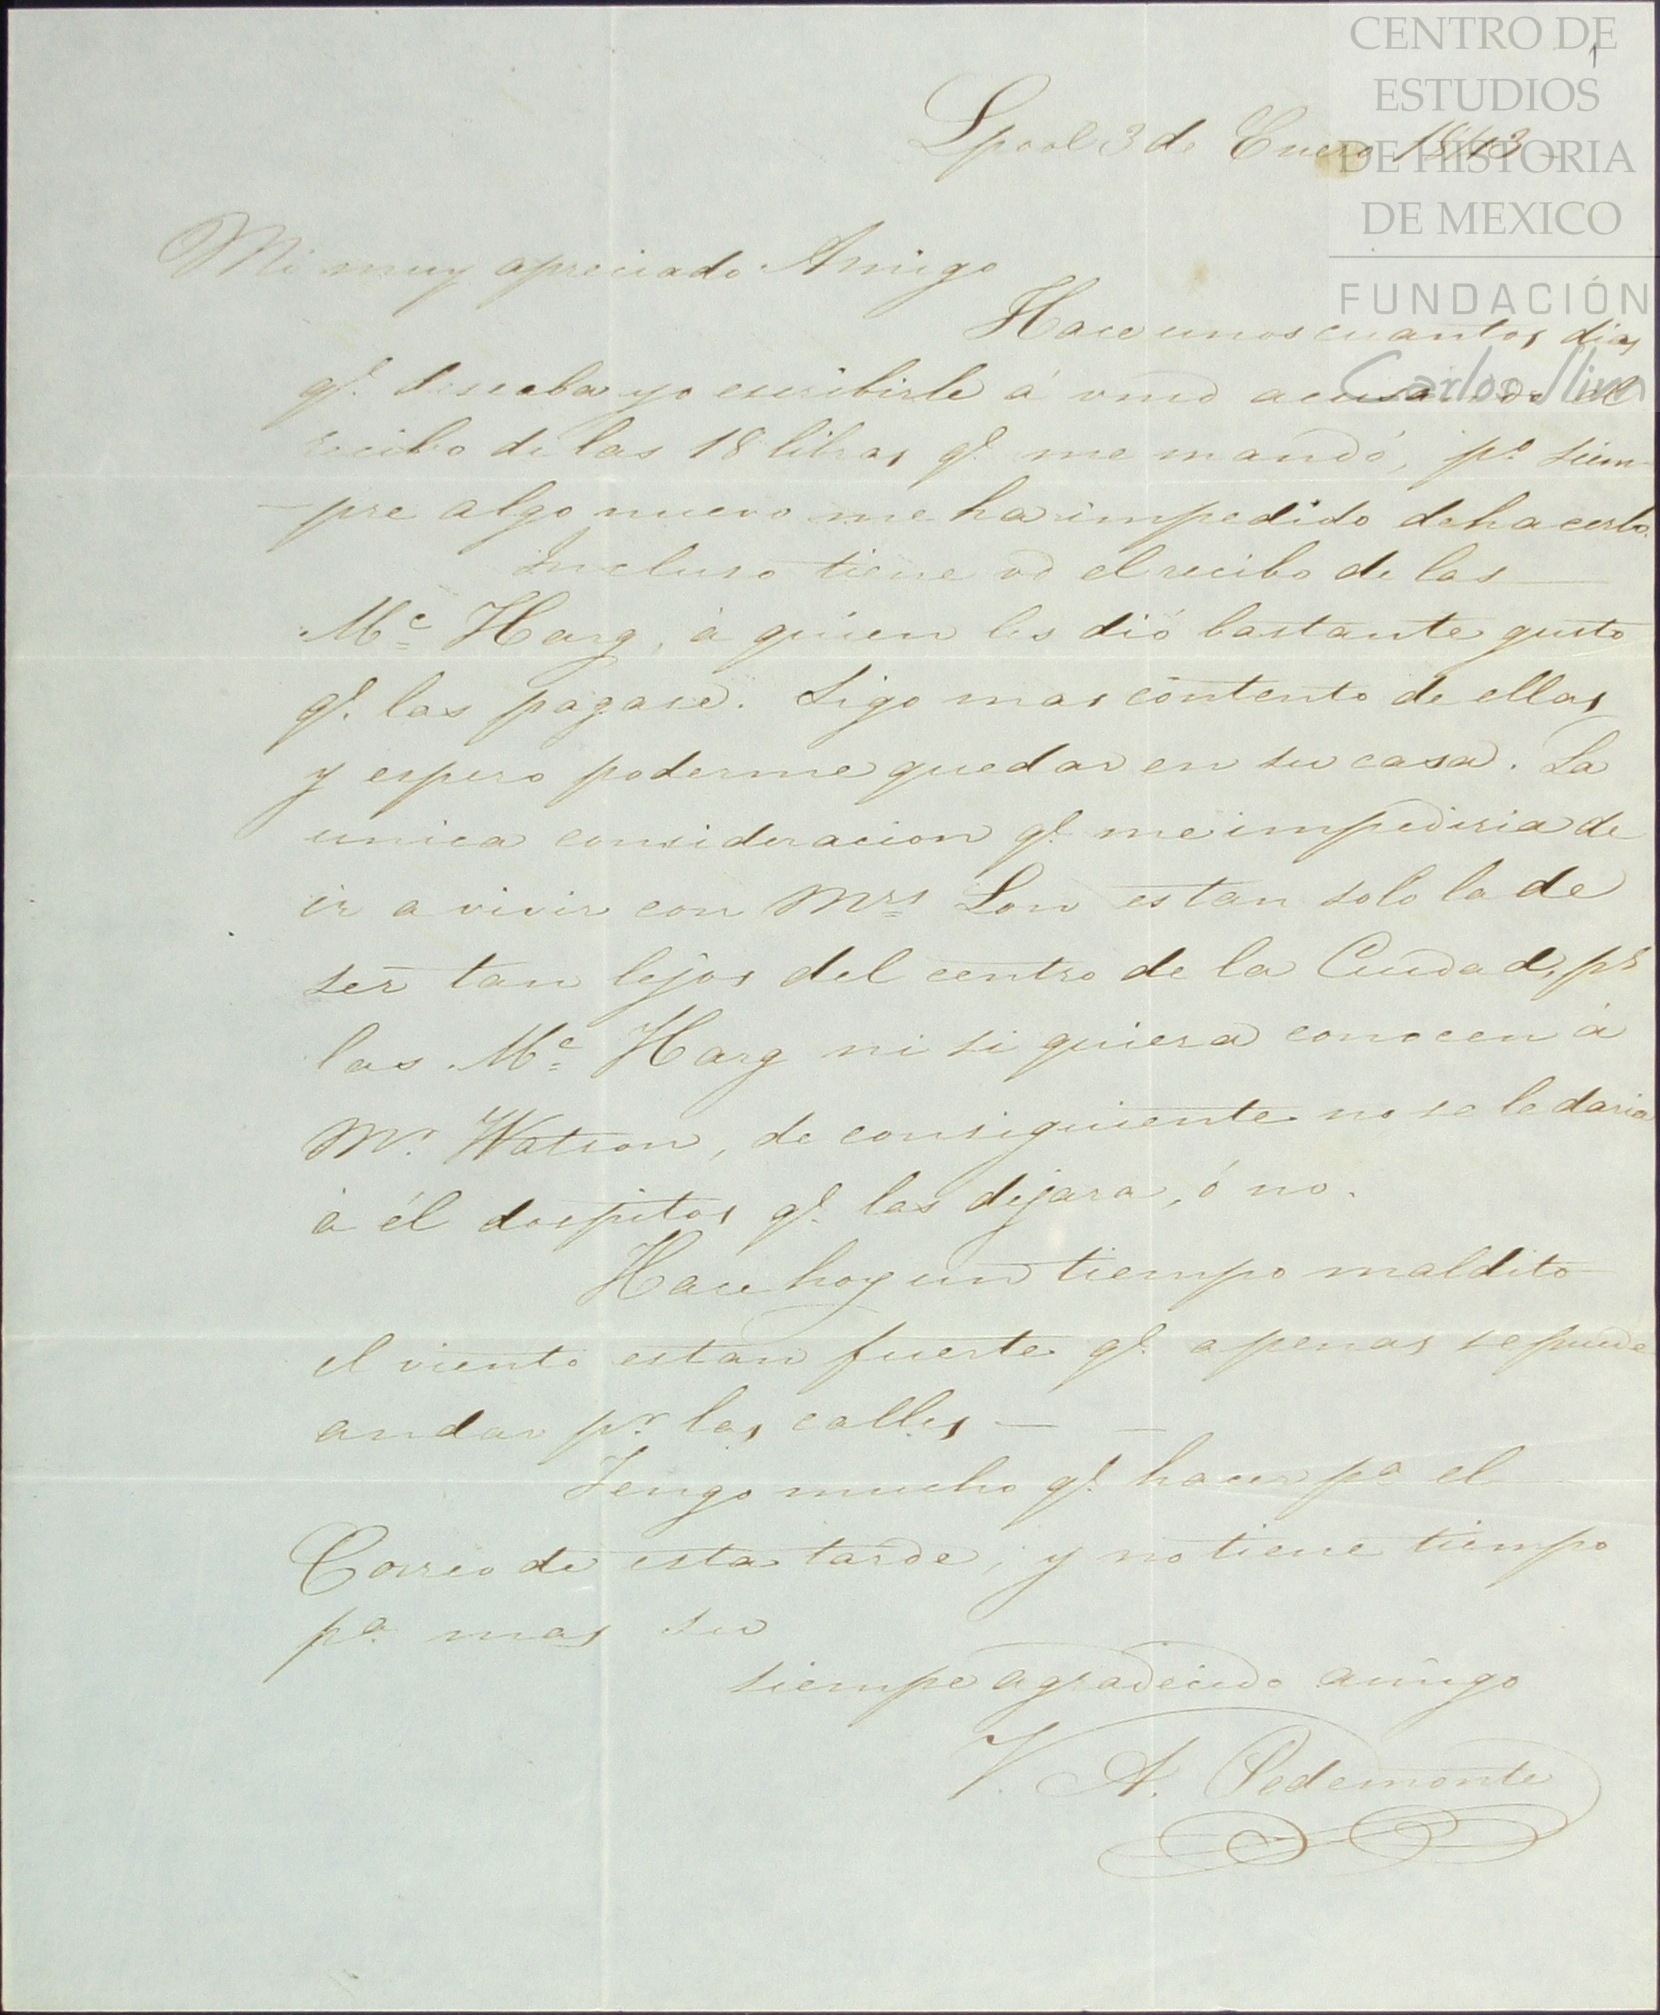 CENTRO DE
ESTUDIOS
DE HISTORIA
DE MEXICO
FUNDACIÓN
Carlos Slim
1
Lpool 3 de Enero 1843 -
Mi muy apreciado Amigo
Hace unos cuantos dias
qe. deseaba yo escribirle á vmd acusando el
recibo de las 18 libras qe. me mandó, po. siem-
-pre algo nuevo me ha impedido de hacerlo.
Incluso tiene vd el recibo de las
Mc Harg, à quien les dió bastante gusto
qe. las pagase. Sigo mas contento de ellas
y espero poderme quedar en su casa. La
unica consideracion qe. me impediria de
ir a vivir con Mrs Lon es tan solo la de
ser tan lejos del centro de la Ciudad, ps
las Mc Harg ni siquiera conocen à
Mr. Watson, de consiguiente no se le daria
à él dos pitos qe. las dejara, ó no.
Hace hoy un tiempo maldito
el viento es tan fuerte qe. apenas se puede
andar pr. las calles —
Tengo mucho qe. hacer pa. el
Correo de esta tarde, y no tiene tiempo
pa. mas su
siempe agradecido amigo
V. A. Pedemonte